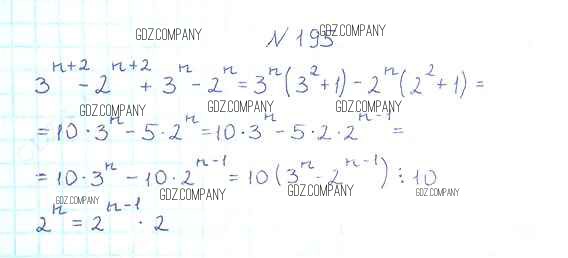 GDZ.COMPANY № 195 GDZ.COMPANY
3^{n+2} - 2^{n+2} + 3^n - 2^n = 3^n (3^2 + 1) - 2^n (2^2 + 1) =
GDZ.COMPANY GDZ.COMPANY GDZ.COMPANY
= 10 · 3^n - 5 · 2^n = 10 · 3^n - 5 · 2 · 2^{n-1} =
= 10 · 3^n - 10 · 2^{n-1} = 10 (3^n - 2^{n-1}) ⋮ 10
GDZ.COMPANY GDZ.COMPANY GDZ.COMPANY GDZ.COMPANY
2^n = 2^{n-1} · 2